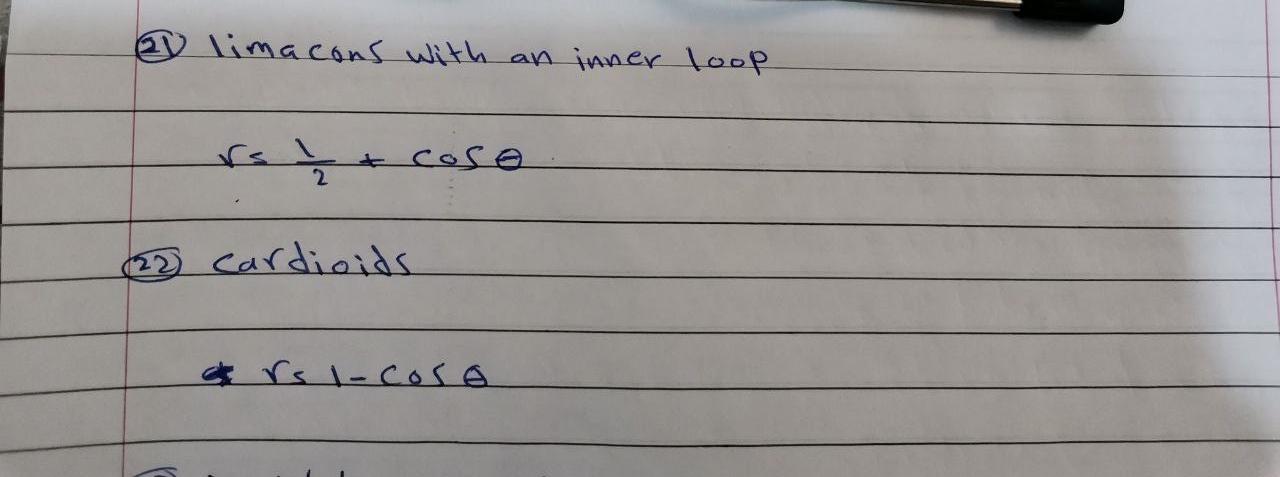 21 limacons with an inner loop
r = 1/2 + cos θ
22 cardioids
r = 1 - cos θ